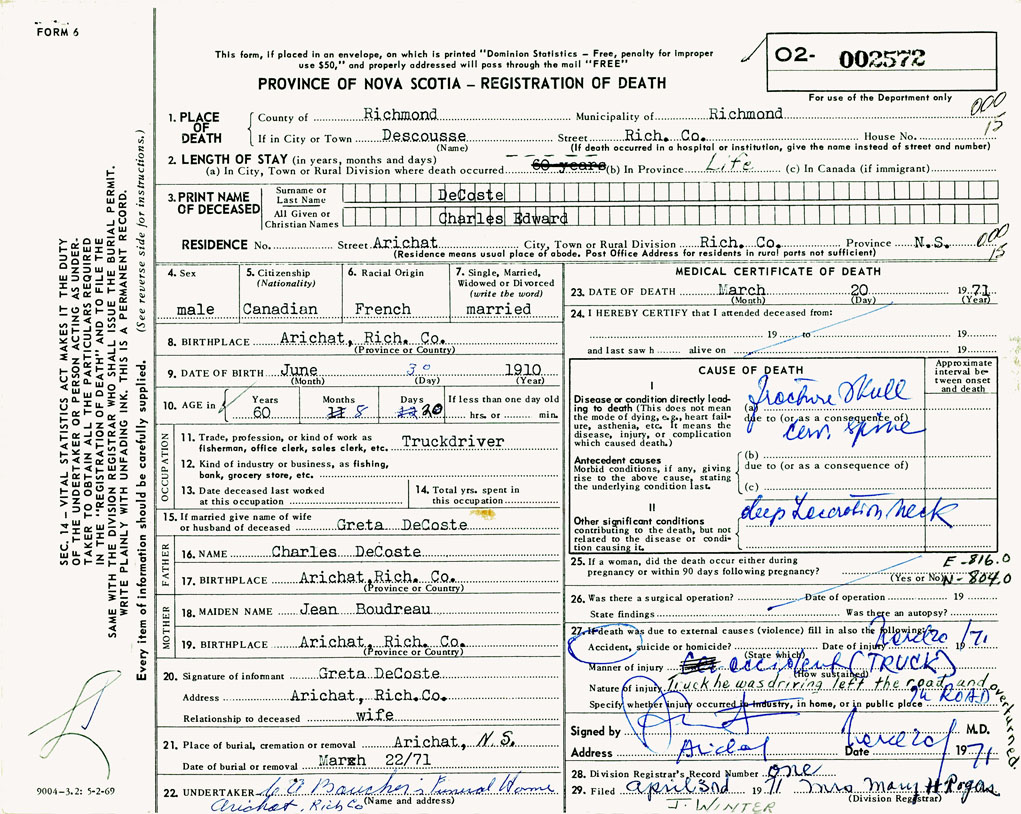 FORM 6
This form, if placed in an envelope, on which is printed "Dominion Statistics – Free, penalty for improper
use $50," and properly addressed will pass through the mail "FREE"
PROVINCE OF NOVA SCOTIA – REGISTRATION OF DEATH
02- 002572
For use of the Department only
SEC. 14 – VITAL STATISTICS ACT MAKES IT THE DUTY
OF THE UNDERTAKER OR PERSON ACTING AS UNDER-
TAKER TO OBTAIN ALL THE PARTICULARS REQUIRED
IN THE "REGISTRATION OF DEATH" AND TO FILE THE
SAME WITH THE DIVISION REGISTRAR WHO SHALL ISSUE THE BURIAL PERMIT.
WRITE PLAINLY WITH UNFADING INK. THIS IS A PERMANENT RECORD.
Every item of information should be carefully supplied. (See reverse side for instructions.)
1. PLACE OF DEATH
County of Richmond Municipality of Richmond 000
If in City or Town Descousse Street Rich. Co. House No. 15
(Name) (If death occurred in a hospital or institution, give the name instead of street and number)
2. LENGTH OF STAY (in years, months and days)
(a) In City, Town or Rural Division where death occurred 60 years (b) In Province Life (c) In Canada (if immigrant)
3. PRINT NAME OF DECEASED
Surname or Last Name DeCoste
All Given or Christian Names Charles Edward
RESIDENCE No. Street Arichat City, Town or Rural Division Rich. Co. Province N.S. 000
(Residence means usual place of abode. Post Office Address for residents in rural parts not sufficient) 15
4. Sex male
5. Citizenship (Nationality) Canadian
6. Racial Origin French
7. Single, Married, Widowed or Divorced (write the word) married
8. BIRTHPLACE Arichat, Rich. Co.
(Province or Country)
9. DATE OF BIRTH June 30 1910
(Month) (Day) (Year)
10. AGE in Years 60 Months 8 Days 20 If less than one day old hrs. or min.
OCCUPATION
11. Trade, profession, or kind of work as fisherman, office clerk, sales clerk, etc. Truckdriver
12. Kind of industry or business, as fishing, bank, grocery store, etc.
13. Date deceased last worked at this occupation
14. Total yrs. spent in this occupation
15. If married give name of wife or husband of deceased Greta DeCoste
FATHER
16. NAME Charles DeCoste
17. BIRTHPLACE Arichat, Rich. Co.
(Province or Country)
MOTHER
18. MAIDEN NAME Jean Boudreau
19. BIRTHPLACE Arichat, Rich. Co.
(Province or Country)
20. Signature of informant Greta DeCoste
Address Arichat, Rich.Co.
Relationship to deceased wife
21. Place of burial, cremation or removal Arichat, N.S.
Date of burial or removal March 22/71
22. UNDERTAKER C.H. Boucher's Funeral Home
(Name and address) Arichat, Rich Co
9004–3.2: 5-2-69
MEDICAL CERTIFICATE OF DEATH
23. DATE OF DEATH March 20 1971
(Month) (Day) (Year)
24. I HEREBY CERTIFY that I attended deceased from:
19 to 19
and last saw h alive on 19
CAUSE OF DEATH
Approximate interval between onset and death
I
Disease or condition directly leading to death (This does not mean the mode of dying, e.g., heart failure, asthenia, etc. It means the disease, injury, or complication which caused death.)
(a) Fracture Skull
due to (or as a consequence of)
Cerv. Spine
Antecedent causes
Morbid conditions, if any, giving rise to the above cause, stating the underlying condition last.
(b)
due to (or as a consequence of)
(c)
II
Other significant conditions contributing to the death, but not related to the disease or condition causing it.
deep Laceration Neck
25. If a woman, did the death occur either during pregnancy or within 90 days following pregnancy?
(Yes or No)
E-816.0
N-804.0
26. Was there a surgical operation? Date of operation 19
State findings Was there an autopsy?
27. If death was due to external causes (violence) fill in also the following:
Accident, suicide or homicide? Date of injury 19 /71
(State which)
Manner of injury accident (TRUCK)
(How sustained)
Nature of injury Truck he was driving left the road and overturned.
Specify whether injury occurred in industry, in home, or in public place IN ROAD
Signed by M.D.
Address Arichat Date 1971
28. Division Registrar's Record Number one
29. Filed April 3rd 1971 Mrs Mary H Rogers
(Division Registrar)
J. WINTER